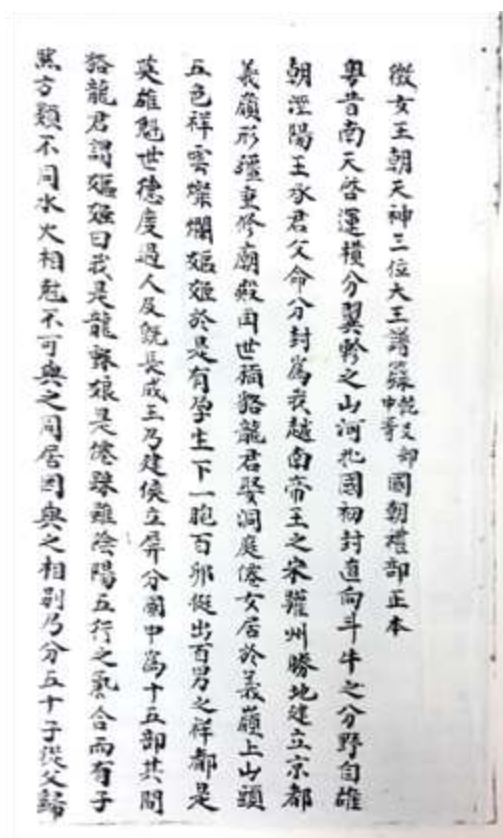 徵女王朝天神三位大王譜籙乾艮部中等國朝禮部正本
粵昔南天啓運橫分翼軫之山河北國初封直向斗牛之分野自雄
朝涇陽王承君父命分封爲我越南帝王之宗驩州勝地建立京都
義嶺形疆重修廟殿因世稱貉龍君娶洞庭僊女居於義嶺上山頭
五色祥雲燦爛嫗姬於是有孕生下一胞百卵挺出百男之祥都是
英雄魁世德度過人及旣長成王乃建侯立屏分國中爲十五部其間
貉龍君謂嫗姬曰我是龍種娘是僊踪雖陰陽五行之氣合而有子
然方類不同水火相尅不可與之同居因與之相別乃分五十子從父歸